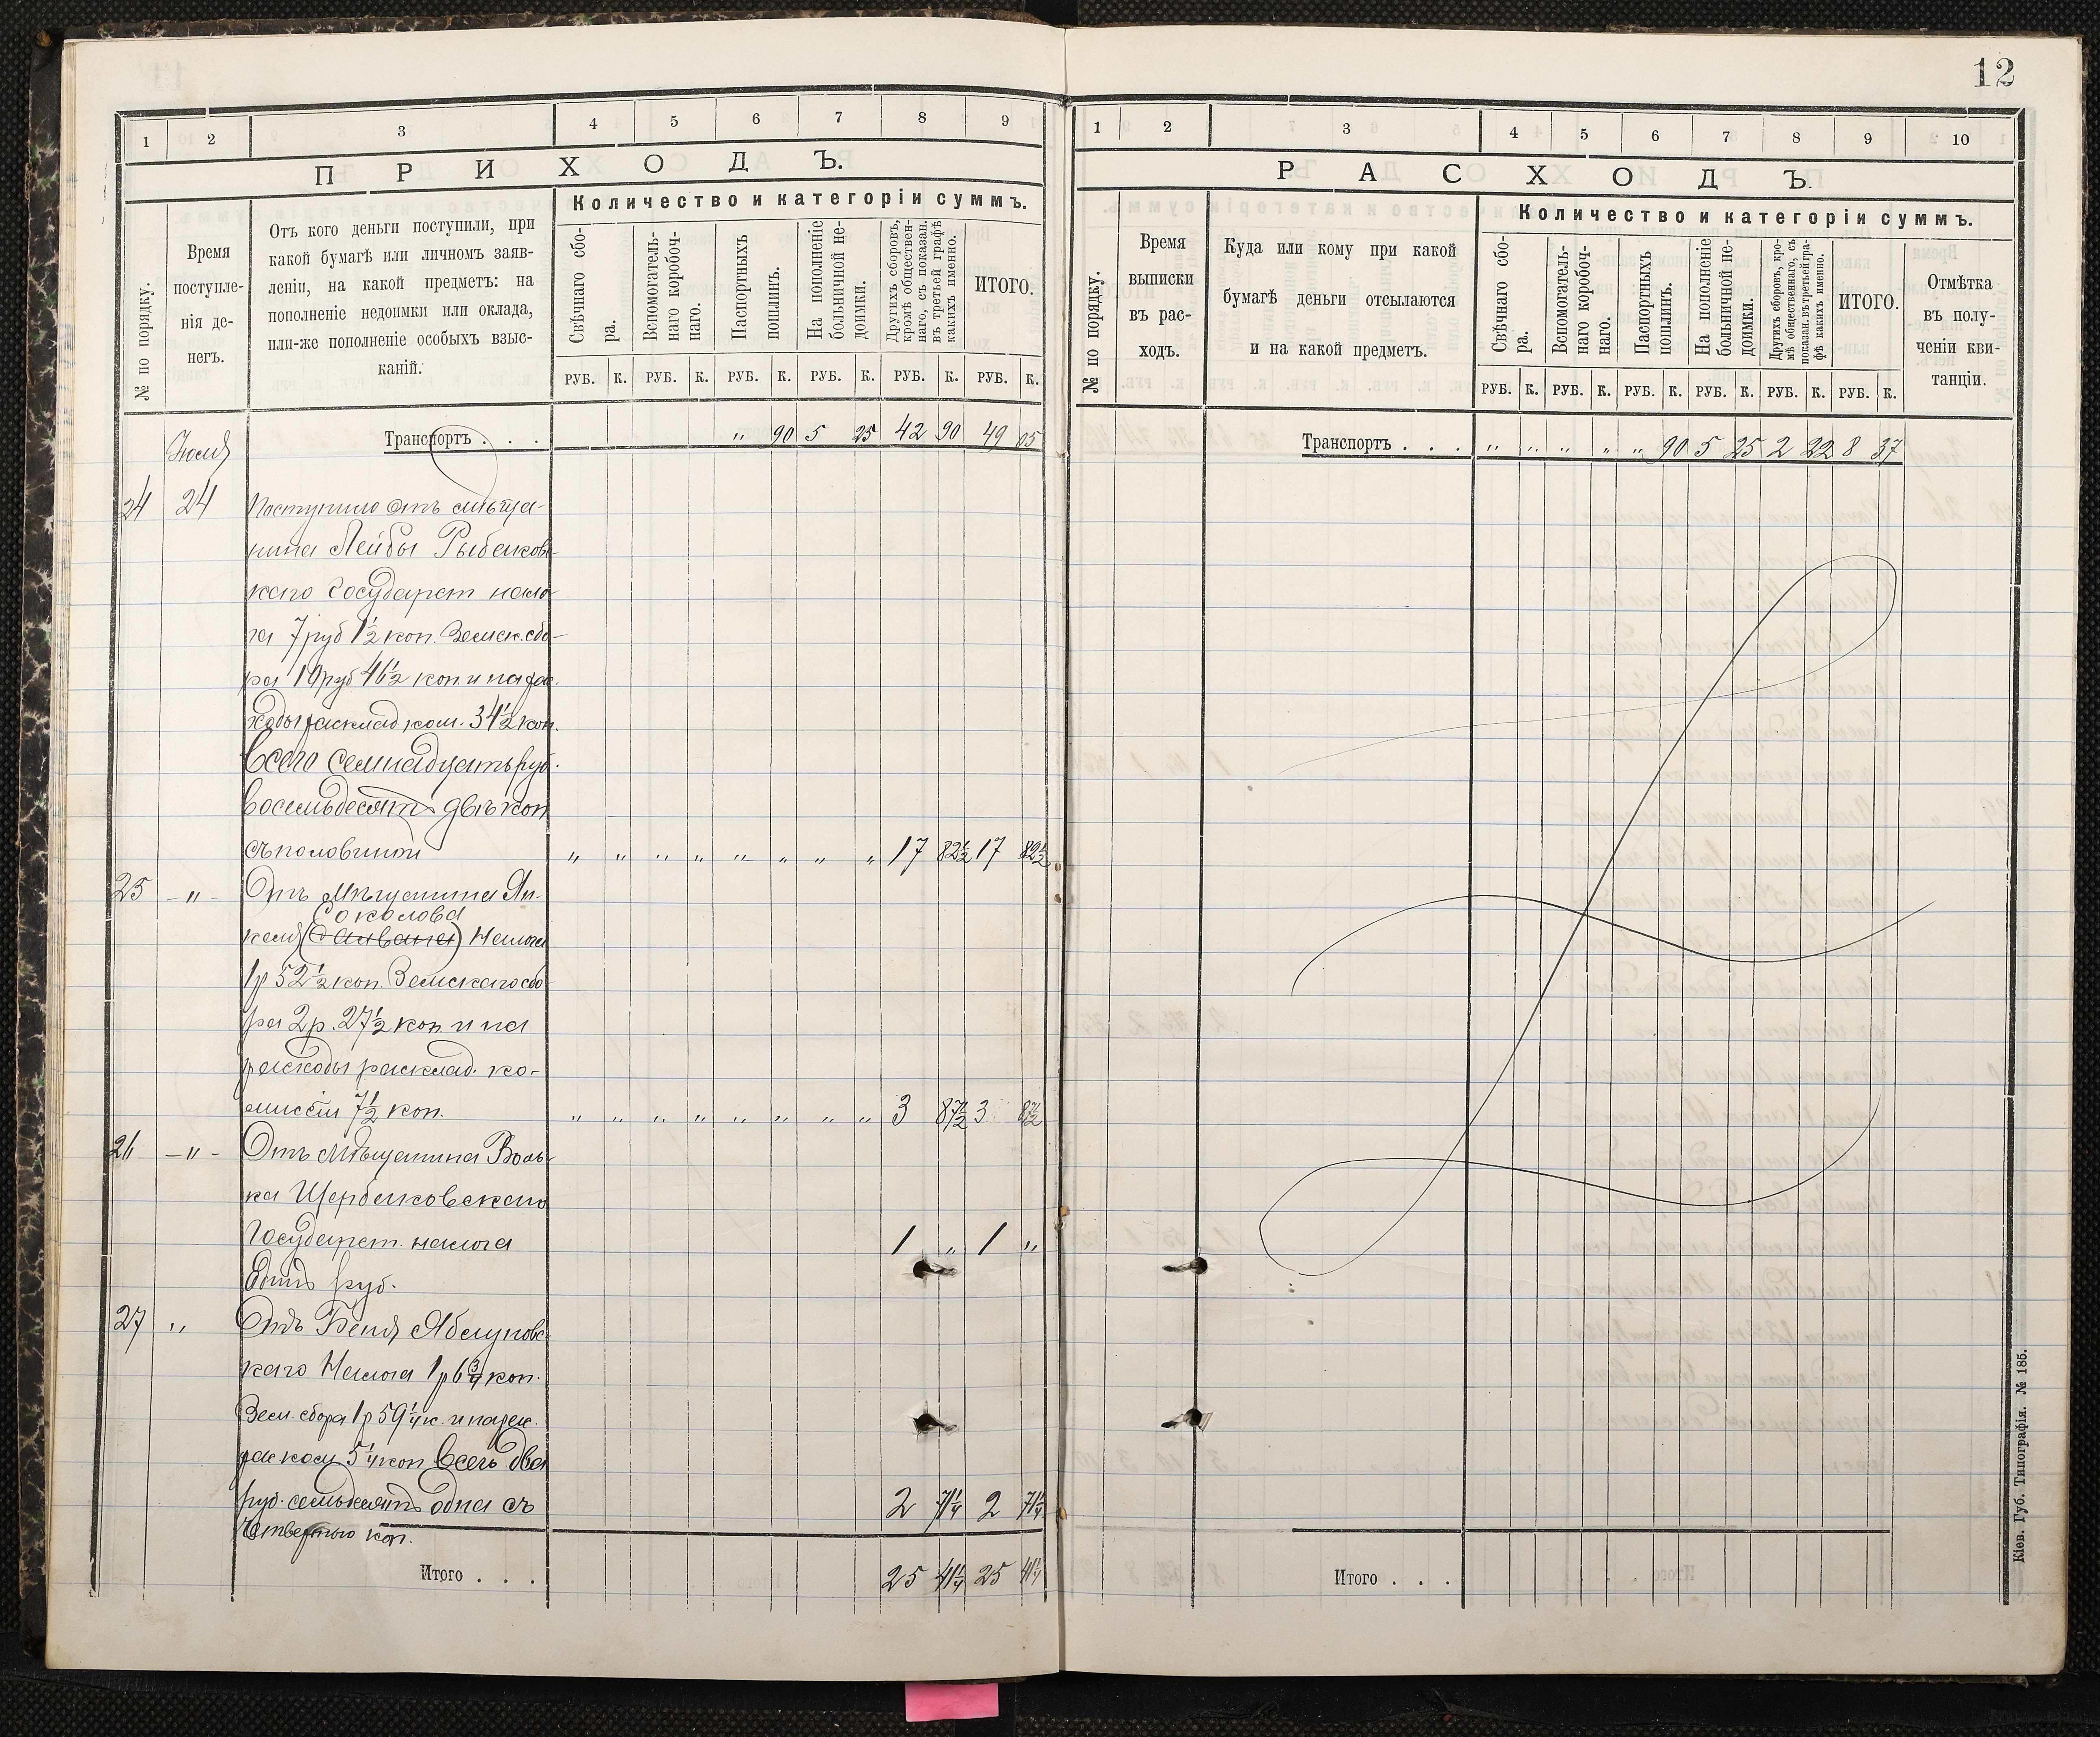 12
1 2 3 4 5 6 7 8 9
ПРИХОДЪ.
№ по порядку.
Время поступле-
нія де-
негъ.
Отъ кого деньги поступили, при
какой бумагѣ или личномъ заяв-
леніи, на какой предметъ: на
пополненіе недоимки или оклада,
или-же пополненіе особыхъ взыс-
каній.
Количество и категоріи суммъ.
Свѣчнаго сбо-
ра.
Вспомогатель-
наго коробоч-
наго.
Паспортныхъ
пошлинъ.
На пополненіе
больничной не-
доимки.
Другихъ сборовъ,
кромѣ обществен-
наго, съ показан.
въ третьей графѣ
какихъ именно.
ИТОГО.
РУБ. К. РУБ. К. РУБ. К. РУБ. К. РУБ. К. РУБ. К.
Транспортъ . . . „ 90 5 25 42 90 49 05
Іюля
24 24 Поступило отъ мѣща-
нина Лейбы Рыбаковс-
каго Государст нало-
га 7 руб 1½ коп. Земск. сбо-
ра 10 руб 46½ коп. и на рас.
ходы расклад ком. 34½ коп.
Всего семнадцать руб.
восемьдесят двѣ коп
съ половиной „ „ „ „ „ „ „ „ 17 82½ 17 82½
25 -„- Отъ Мѣщанина Ян-
Соколова
келя Налога
1р 52½ коп. Земскаго сбо-
ра 2р. 27½ коп. и на
расходы расклад. ко-
миссіи 7½ коп. „ „ „ „ „ „ „ „ 3 87½ 3 87½
26 -„- Отъ Мѣщанина Воль-
ка Щербаковскаго
Государст. налога 1 „ 1 „
Одинъ руб.
27 „ Отъ Беня Яблуновс-
каго Налога 1р 6¾ коп.
Зем. сбора 1р 59¼ к. и на рас.
рас ком 5¼ коп Всего два
руб. семьдесятъ одна съ 2 71¼ 2 71¼
четвертью коп.
Итого . . . 25 41¼ 25 41¼
1 2 3 4 5 6 7 8 9 10
РАСХОДЪ.
№ по порядку.
Время
выписки
въ рас-
ходъ.
Куда или кому при какой
бумагѣ деньги отсылаются
и на какой предметъ.
Количество и категоріи суммъ.
Свѣчнаго сбо-
ра.
Вспомогатель-
наго коробоч-
наго.
Паспортныхъ
пошлинъ.
На пополненіе
больничной не-
доимки.
Другихъ сборовъ, кро-
мѣ общественнаго, съ
показан. въ третьей гра-
фѣ какихъ именно.
ИТОГО.
Отмѣтка
въ полу-
ченіи кви-
танціи.
РУБ. К. РУБ. К. РУБ. К. РУБ. К. РУБ. К. РУБ. К.
Транспортъ . . . „ „ „ „ „ 90 5 25 2 22 8 37
Итого . . .
Кіев. Губ. Типографія. № 185.